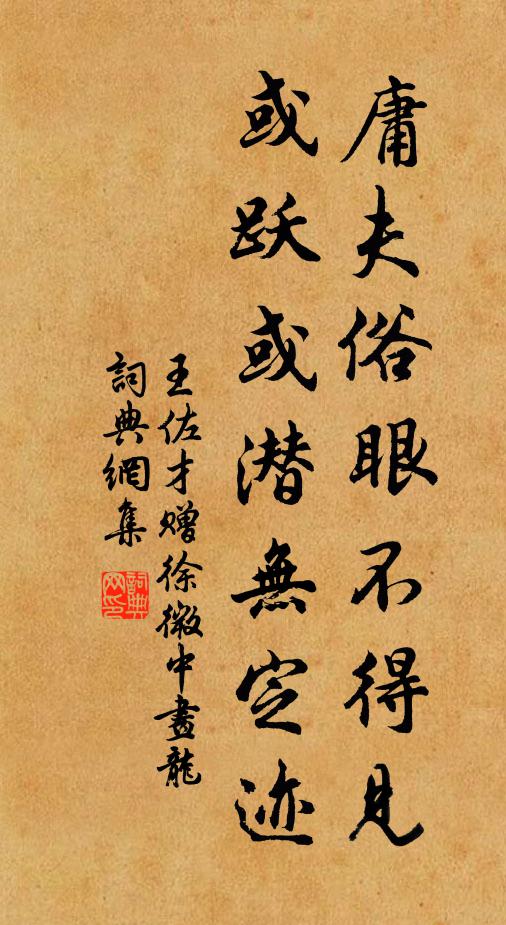 庸夫俗眼不得見
或跃或潜無定迹
王佐才赠徐徵中畫龍
詞典網集
詞典网印